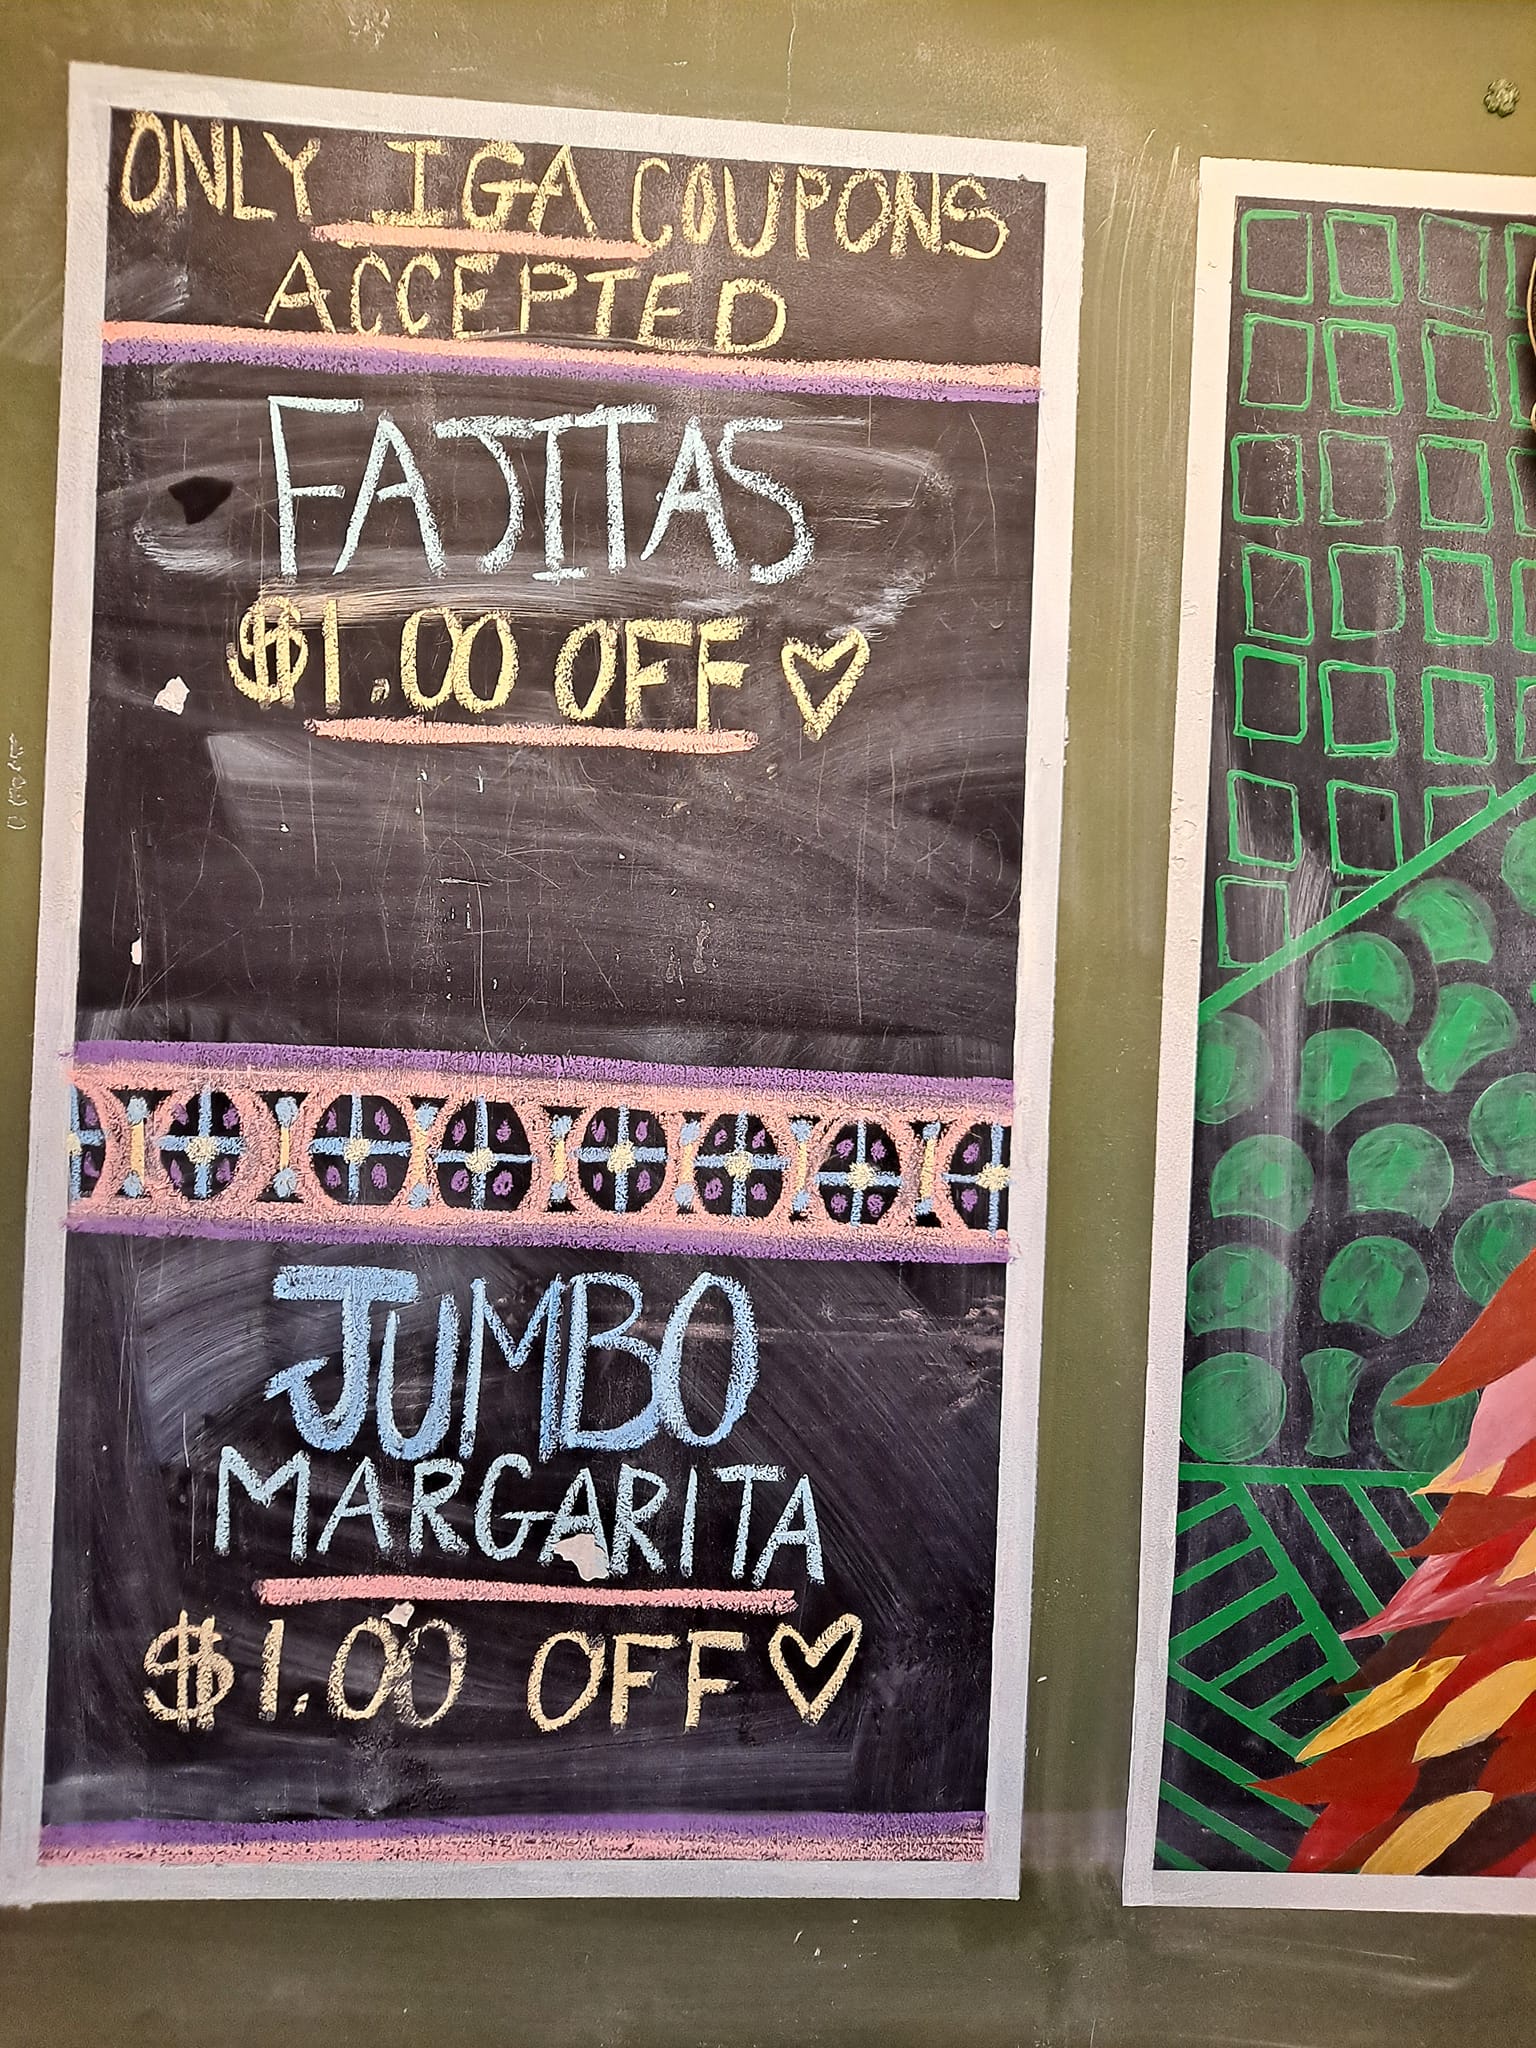 ONLY IGA COUPONS
ACCEPTED
FAJITAS
$1.00 OFF
JUMBO
MARGARITA
$1.00 OFF